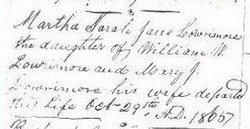 Martha Sarah Jane Lowremore
the daughter of William W.
Lowremore and Mary J.
Lowremore his wife departed
this life Oct 29th, A.D. 1865